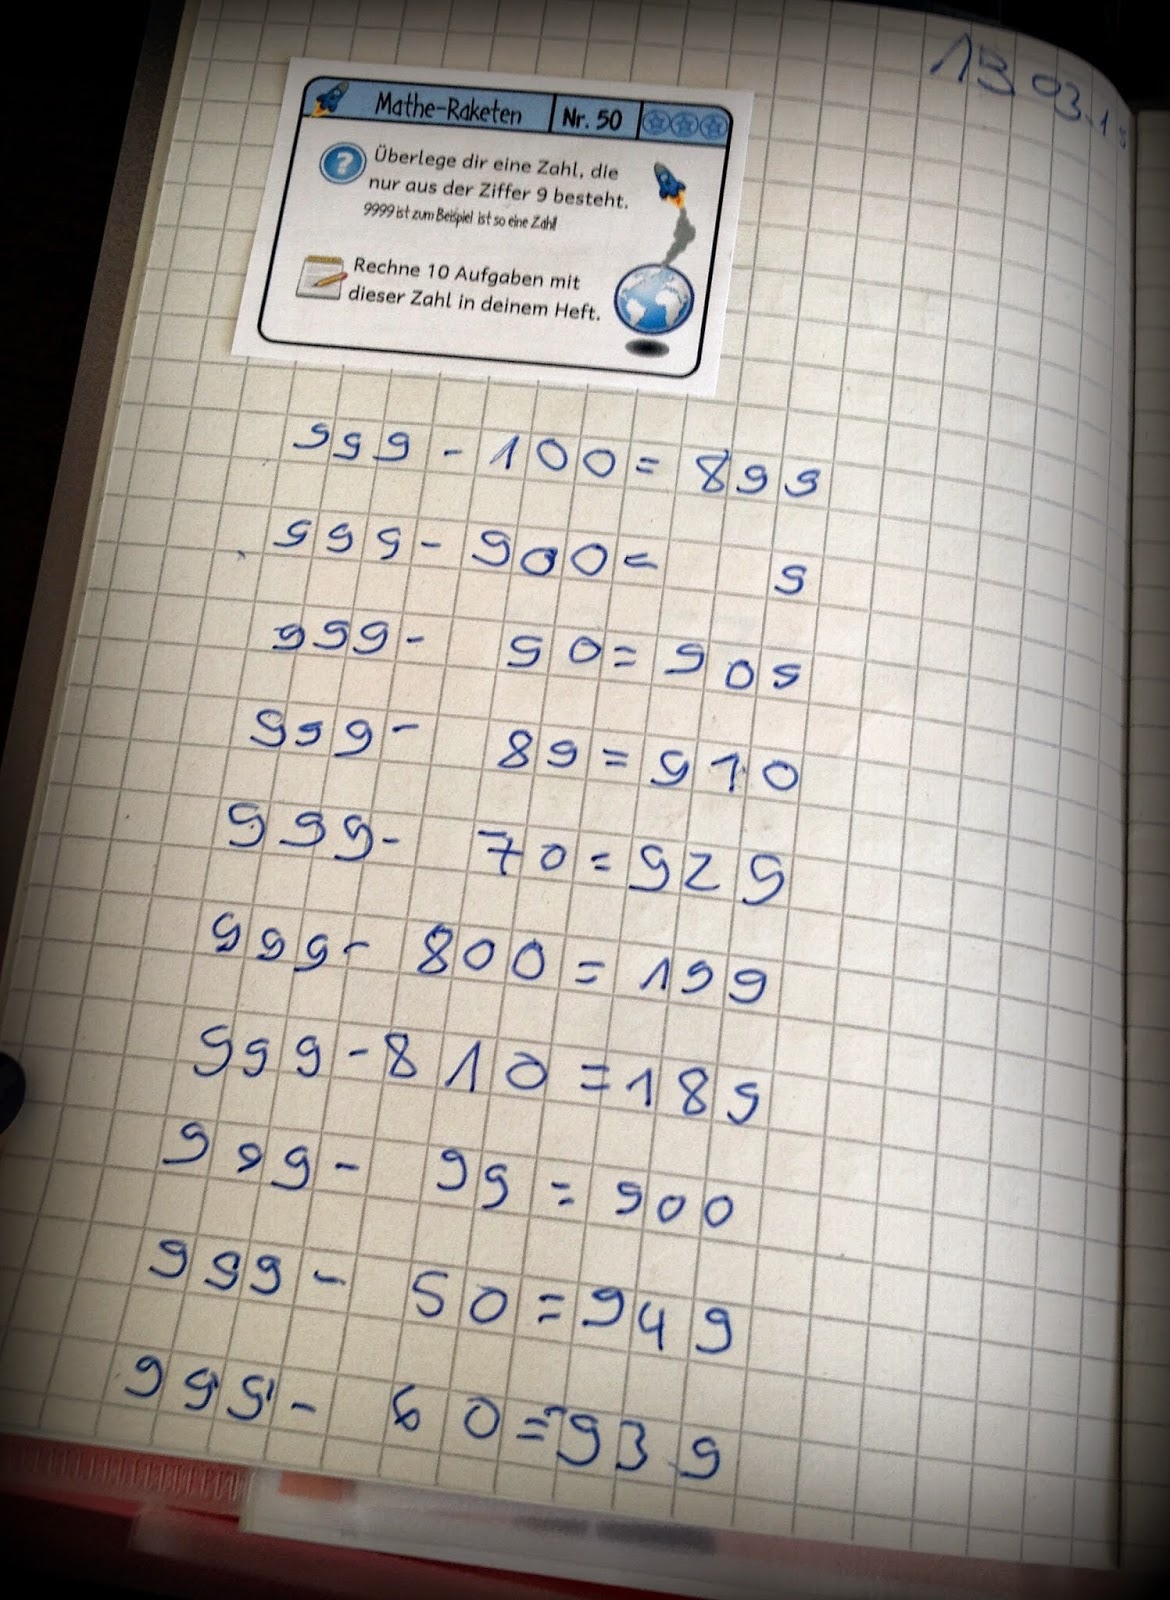 13.03.1
Mathe-Raketen Nr. 50
Überlege dir eine Zahl, die
nur aus der Ziffer 9 besteht.
9999 ist zum Beispiel ist so eine Zahl!
Rechne 10 Aufgaben mit
dieser Zahl in deinem Heft.
999 - 100 = 899
999 - 900 = 9
999 - 90 = 909
999 - 89 = 910
999 - 70 = 929
999 - 800 = 199
999 - 810 = 189
999 - 99 = 900
999 - 50 = 949
999 - 60 = 939